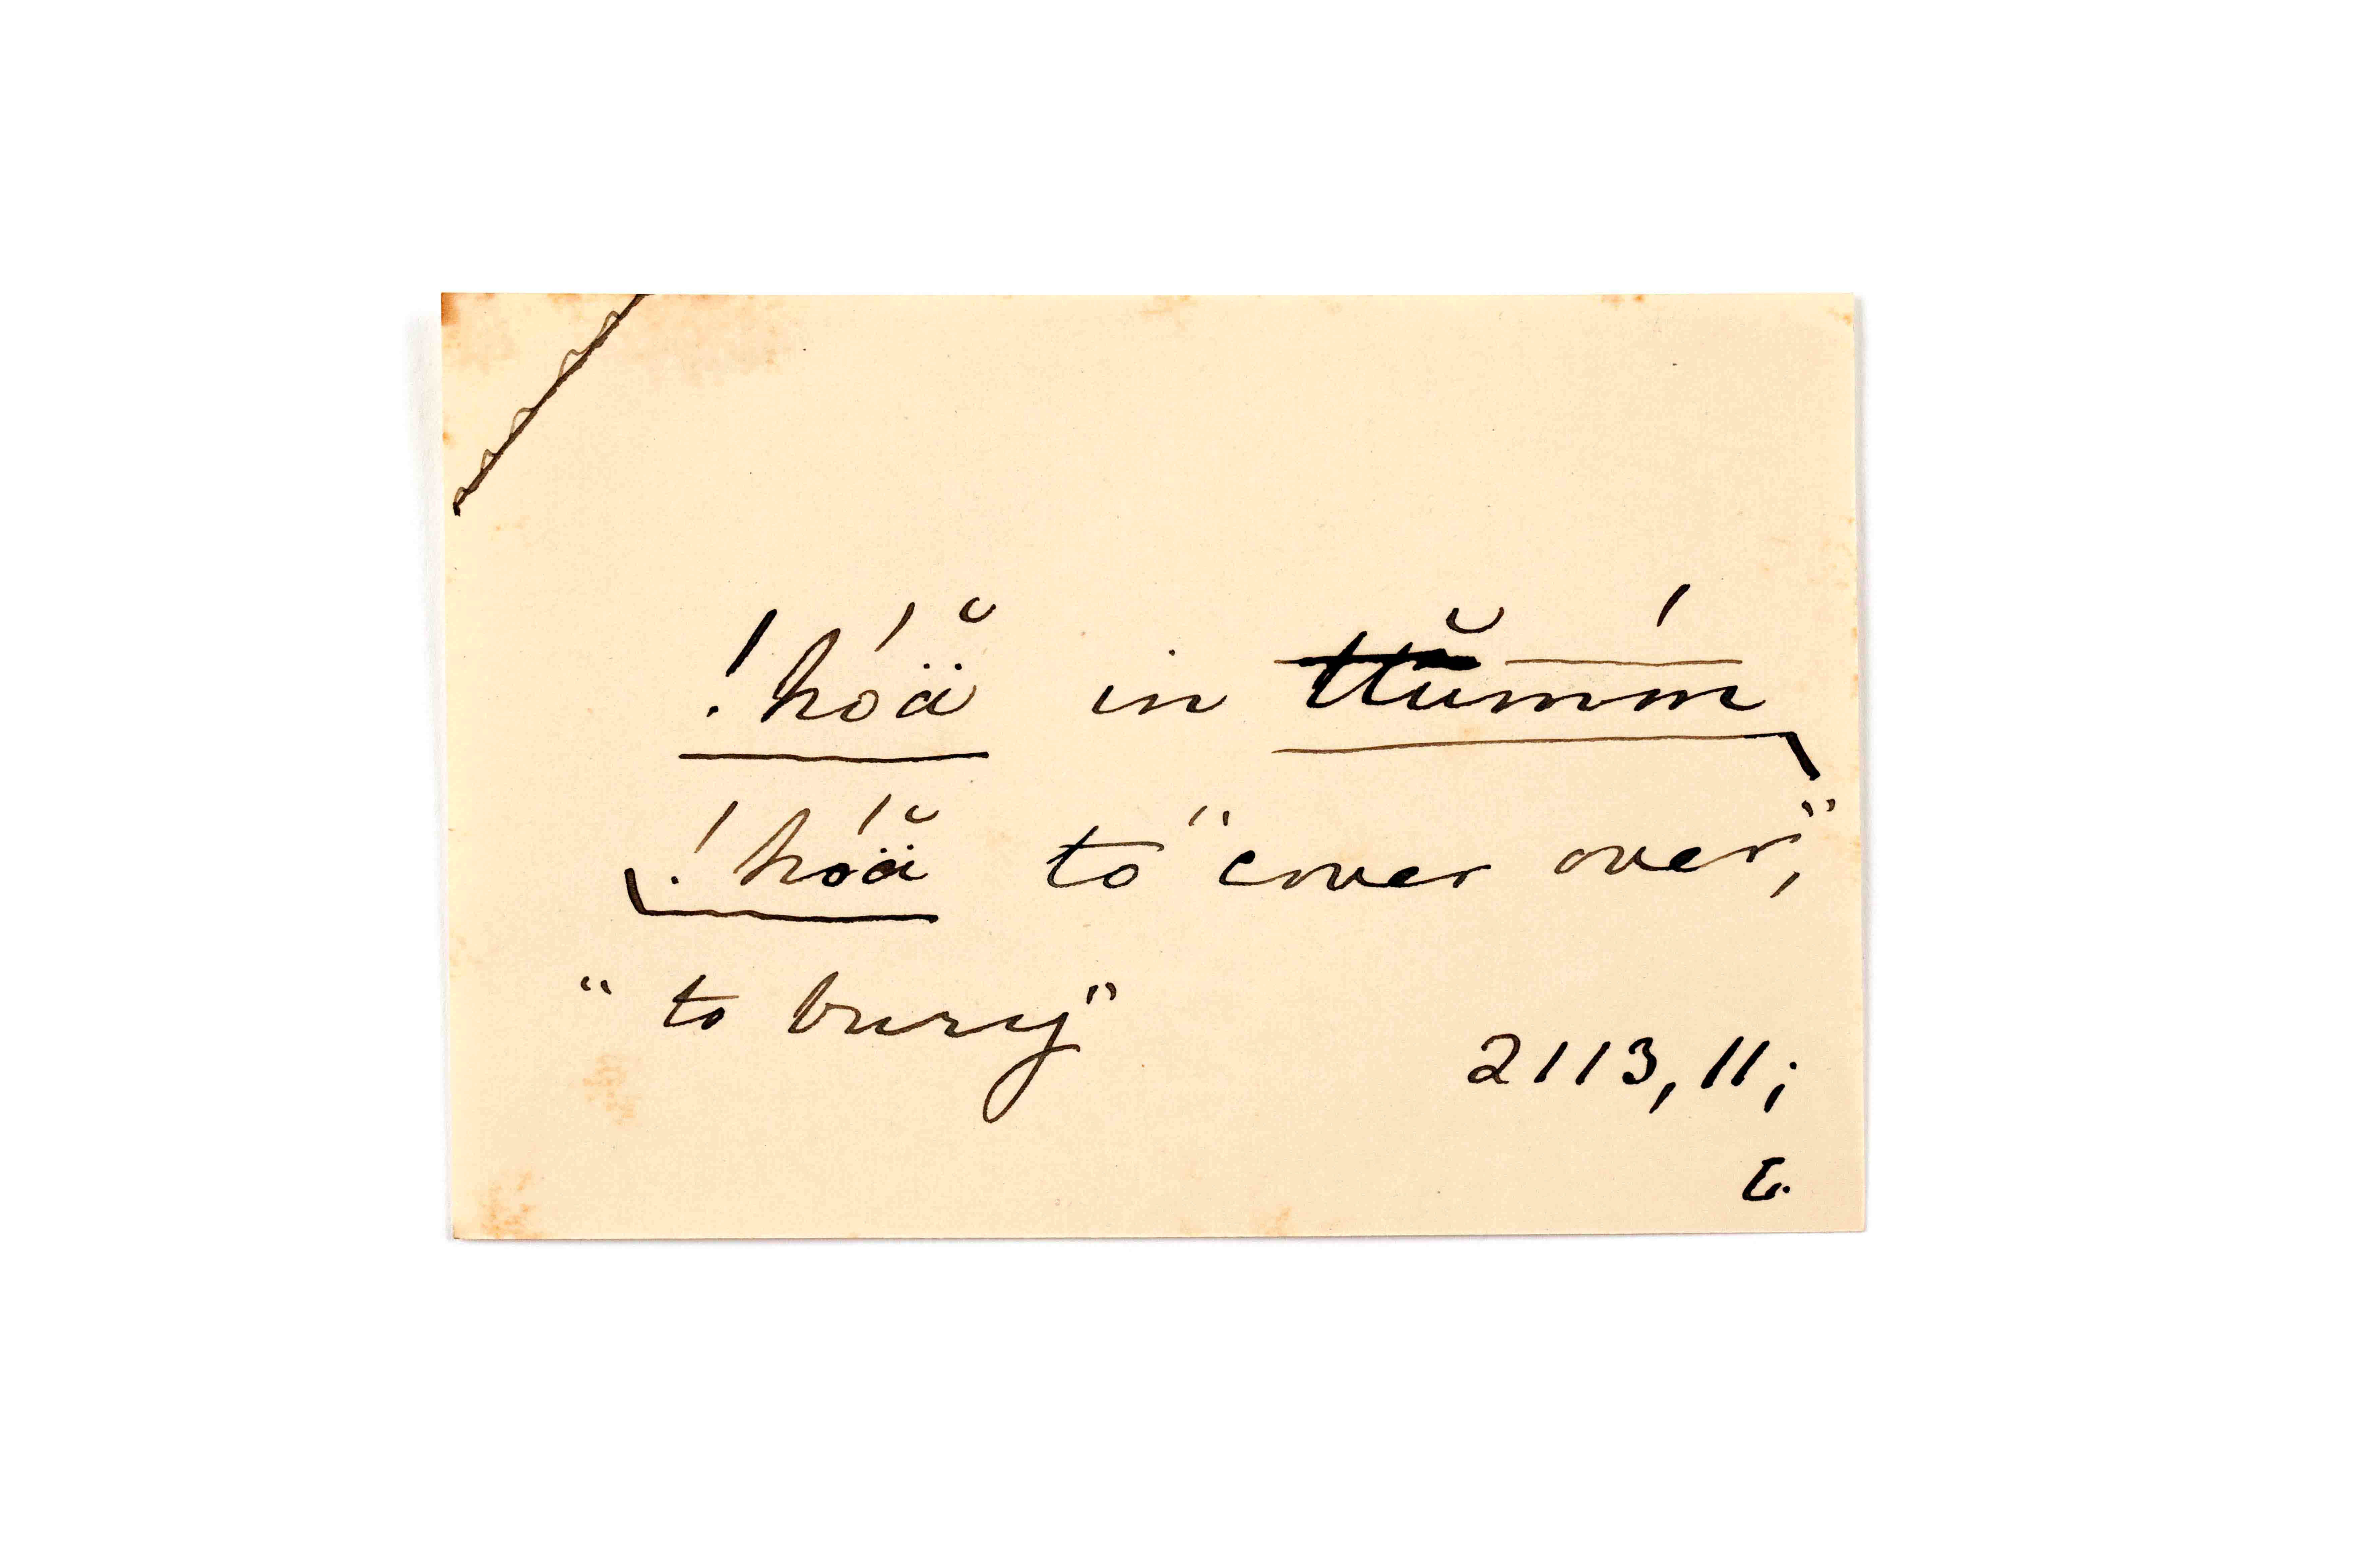 !hóä̆ in ttŭmḿ
!hóä̆ to "cover over,"
"to bury"
2113, 11;